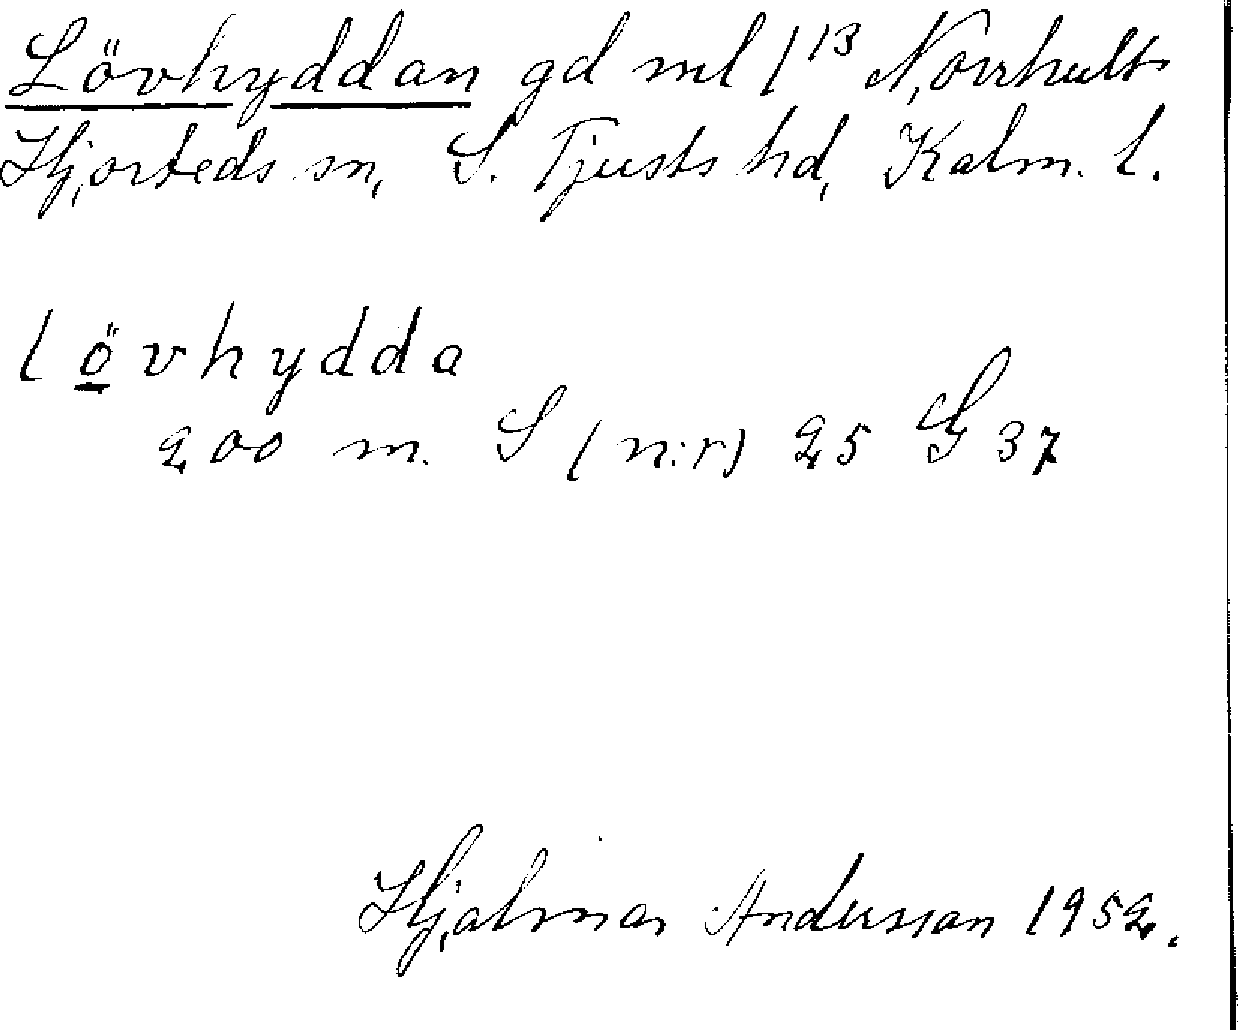 Lövhyddan gd ml 1¹³ Norrhult
Hjorteds sn, S. Tjusts hd, Kalm. l.
lövhydda
200 m. S (n:r) 25 G 37
Hjalmar Andersson 1952.